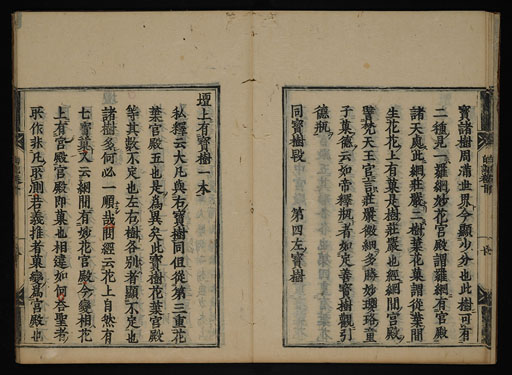 寶諸樹周滿世界今顯少分也此樹可有
二種見一羅網妙花宮殿謂羅網有宮殿
諸天處此網莊嚴二樹葉花菓謂從葉間
生花花上有菓是樹莊嚴也經網間宮殿
譬梵天王宮言莊嚴微細多勝妙瓔珞童
子菓德云如帝釋瓶者如定善寶樹觀引
德瓶
同寶樹段 第四左寶樹
壇上有寶樹一本
私釋云大凡與右寶樹同但從第三重花
葉宮殿五也是爲異矣此寶樹花葉宮殿
等其數不定也左右樹各別者顯不定也
諸樹多何必一順哉問經云花上自然有
七寶菓又云網間有妙花宮殿今變相花
上有宮殿宮殿即菓也相違如何答聖者
所作非凡所測若義推者菓變爲宮殿也